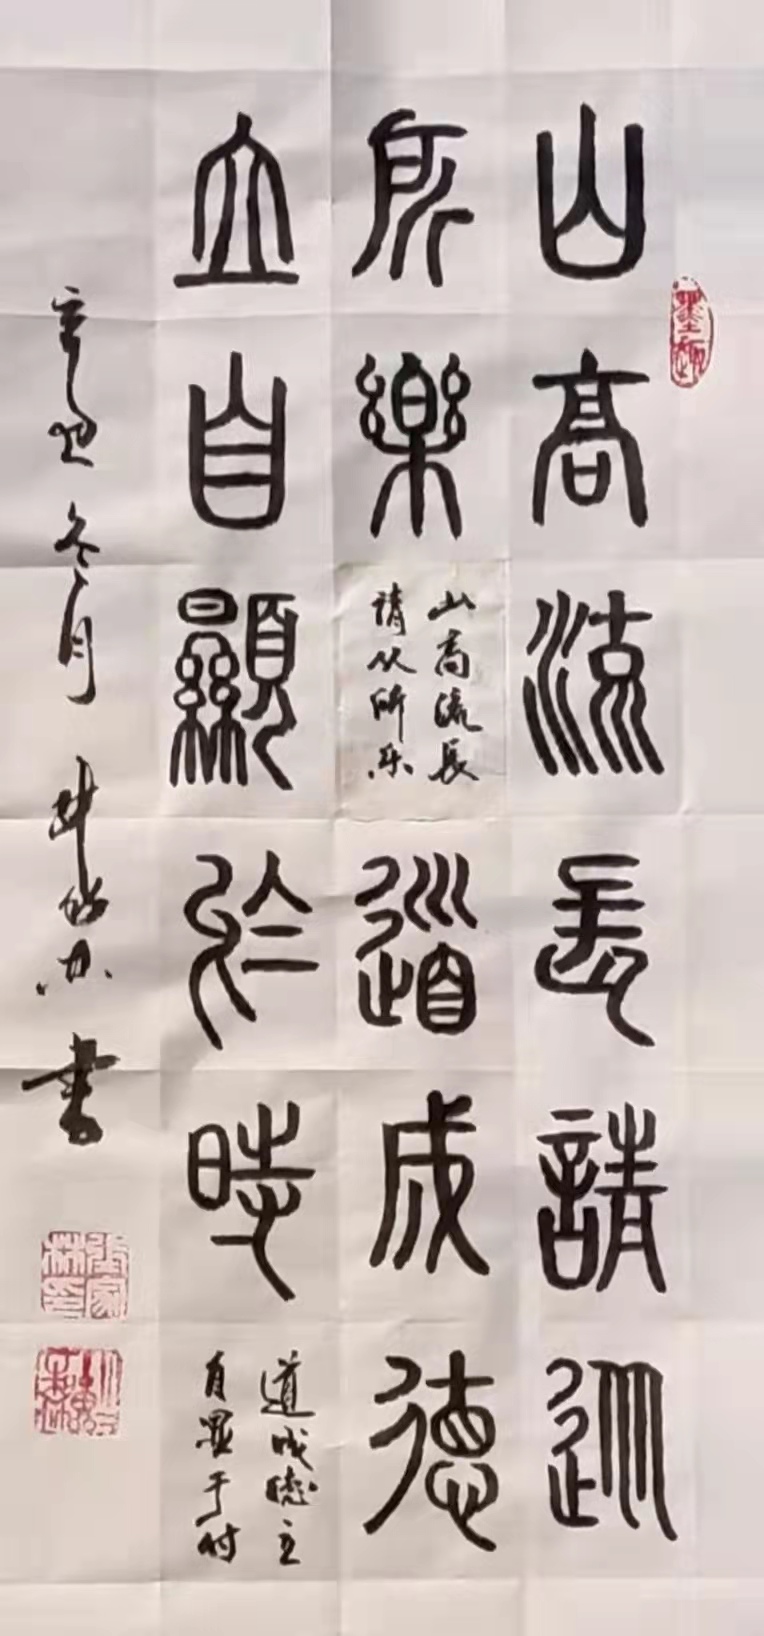 墨趣
山高流長請從
所樂
山高流長
請从所乐
道成德
立自顯於時
道成德立
自显于时
辛丑冬月
書